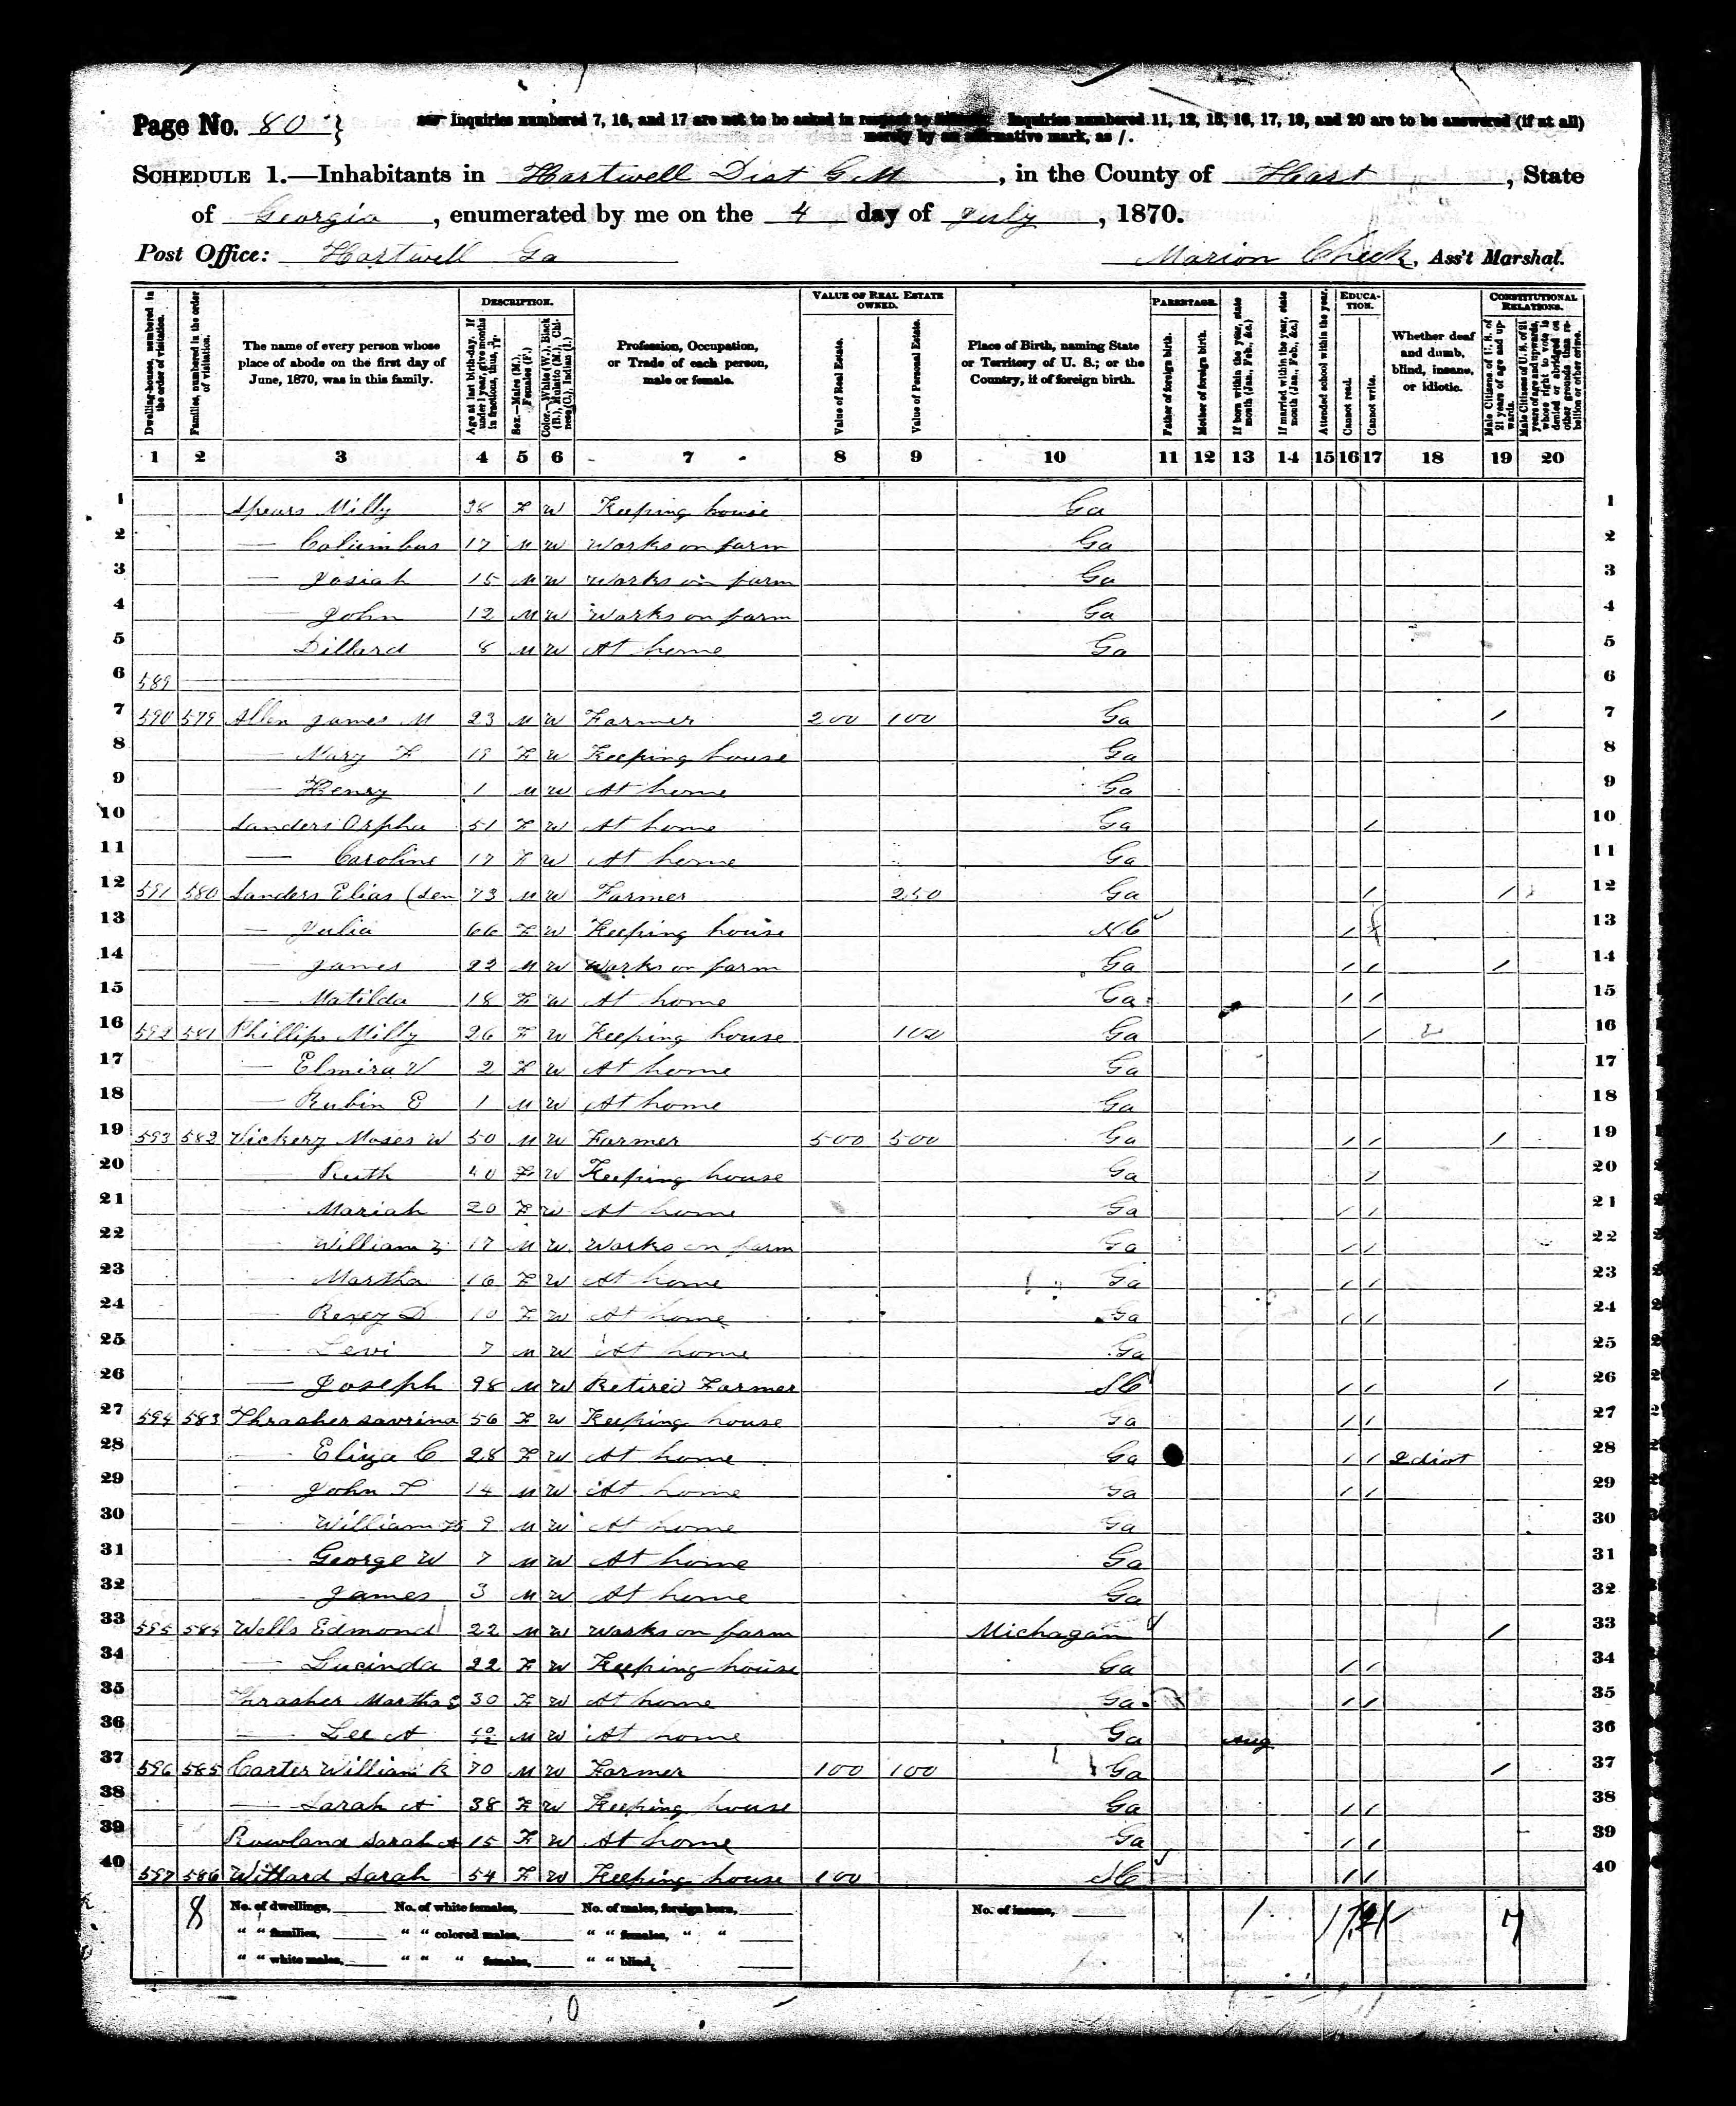 Page No. 80
Inquiries numbered 7, 16, and 17 are not to be asked in respect to Inquiries numbered 11, 12, 15, 16, 17, 19, and 20 are to be answered (if at all)
merely by an affirmative mark, as /.
SCHEDULE 1.—Inhabitants in Hartwell Dist G.M, in the County of Hart, State
of Georgia, enumerated by me on the 4 day of July, 1870.
Post Office: Hartwell Ga
Marion Cheek, Ass't Marshal.
Dwelling-houses, numbered in the order of visitation.
Families, numbered in the order of visitation.
The name of every person whose place of abode on the first day of June, 1870, was in this family.
DESCRIPTION.
Age at last birth-day. If under 1 year, give months in fractions, thus,
Sex.—Males (M.), Females (F.)
Color.—White (W.), Black (B.), Mulatto (M.), Chinese (C.), Indian (I.)
Profession, Occupation, or Trade of each person, male or female.
VALUE OF REAL ESTATE OWNED.
Value of Real Estate.
Value of Personal Estate.
Place of Birth, naming State or Territory of U. S.; or the Country, if of foreign birth.
PARENTAGE.
Father of foreign birth.
Mother of foreign birth.
If born within the year, state month (Jan., Feb., &c.)
If married within the year, state month (Jan., Feb., &c.)
Attended school within the year.
EDUCATION.
Cannot read.
Cannot write.
Whether deaf and dumb, blind, insane, or idiotic.
CONSTITUTIONAL RELATIONS.
Male Citizens of U. S. of 21 years of age and upwards.
Male Citizens of U. S. of 21 years of age and upwards, whose right to vote is denied or abridged on other grounds than rebellion or other crime.
1 2 3 4 5 6 7 8 9 10 11 12 13 14 15 16 17 18 19 20
1 Spears Milly 38 F W Keeping house Ga 1
2 — Columbus 17 M W Works on farm Ga 2
3 — Josiah 15 M W Works on farm Ga 3
4 — John 12 M W Works on farm Ga 4
5 Dillard 8 M W At home Ga 5
6 589 6
7 590 579 Allen James M 23 M W Farmer 200 100 Ga / 7
8 — Mary F 19 F W Keeping house Ga 8
9 — Henry 1 M W At home Ga 9
10 Sanders Orpha 51 F W At home Ga / 10
11 — Caroline 17 F W At home Ga 11
12 591 580 Sanders Elias (Sen 73 M W Farmer 250 Ga / / 12
13 — Julia 66 F W Keeping house N C / / 13
14 — James 22 M W Works on farm Ga / / / 14
15 — Matilda 18 F W At home Ga / / 15
16 592 581 Phillips Milly 26 F W Keeping house 100 Ga / 16
17 — Elmira V 2 F W At home Ga 17
18 — Rubin E 1 M W At home Ga 18
19 593 582 Vickery Moses W 50 M W Farmer 500 500 Ga / / / 19
20 — Ruth 40 F W Keeping house Ga / 20
21 — Mariah 20 F W At home Ga / / 21
22 — William 17 M W Works on farm Ga / / 22
23 — Martha 16 F W At home Ga / / 23
24 — Rexey D 10 F W At home Ga / / 24
25 — Levi 7 M W At home Ga 25
26 — Joseph 98 M W Retired Farmer S C / / / 26
27 594 583 Thrasher Savrina 56 F W Keeping house Ga / / 27
28 — Eliza C 28 F W At home Ga / / Idiot 28
29 — John T 14 M W At home Ga / / 29
30 — William H 9 M W At home Ga 30
31 — George W 7 M W At home Ga 31
32 — James 3 M W At home Ga 32
33 595 584 Wells Edmond 22 M W Works on farm Michagan / 33
34 — Lucinda 22 F W Keeping house Ga / / 34
35 Thrasher Martha 30 F W At home Ga / / 35
36 — Lee A 10/12 M W At home Ga Aug 36
37 596 585 Carter William R 70 M W Farmer 100 100 Ga / 37
38 — Sarah A 38 F W Keeping house Ga / / 38
39 Rowland Sarah A 15 F W At home Ga / / 39
40 597 586 Willard Sarah 54 F W Keeping house 100 S C / / 40
8 No. of dwellings, No. of white females, No. of males, foreign born, No. of insane, 1 7
" " families, " " colored males, " " females, " "
" " white males, " " " females, " " blind,